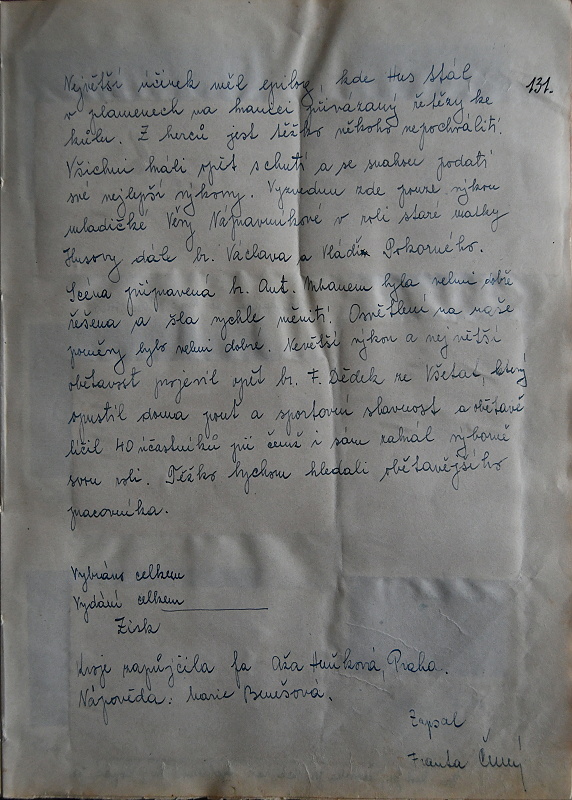 131.
Největší účinek měl epilog, kde Hus stál
v plamenech na hranici přivázaný řetězy ke
kůlu. Z herců jest těžko někoho nepochváliti.
Všichni hráli opět s chutí a se snahou podati
své nejlepší výkony. Vyzvednu zde pouze výkon
mladičké Věry Nápravníkové v roli staré matky
Husovy dále br. Václava a Vládi Pokorného.
Scéna připravená br. Ant. Urbanem byla velmi dobře
řešena a šla rychle měniti. Osvětlení na naše
poměry bylo velmi dobré. Největší výkon a největší
obětavost projevil opět br. F. Dědek ze Všetat, který
opustil doma pouť a sportovní slavnost a obětavě
líčil 40 účastníků při čemž i sám zahrál výborně
svou roli. Těžko bychom hledali obětavějšího
pracovníka.
Vybráno celkem
Vydání celkem
Zisk
Kroje zapůjčila fa Aža Hušková, Praha.
Nápověda: Marie Benešová.
Zapsal
Franta Černý